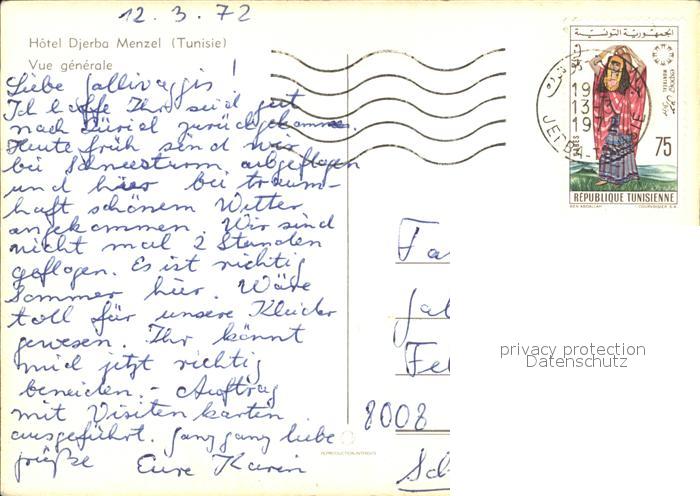 12. 3. 72
Hôtel Djerba Menzel (Tunisie)
Vue générale
Liebe Gallivaggis!
Ich hoffe Ihr seid gut
nach Zürich zurückgekommen.
Heute früh sind wir
bei Schneesturm abgeflogen
und hier bei traum-
haft schönem Wetter
angekommen. Wir sind
nicht mal 2 Stunden
geflogen. Es ist richtig
Sommer hier. Wäre
toll für unsere Kleider
gewesen. Ihr könnt
mich jetzt richtig
beneiden. - Auftrag
mit Visitenkarten
ausgeführt. Ganz ganz liebe
grüße Eure Karin
REPRODUCTION INTERDITE
الجمهورية التونسية
75
REPUBLIQUE TUNISIENNE
Fa
Gal
Fel
8008
Sch
privacy protection
Datenschutz